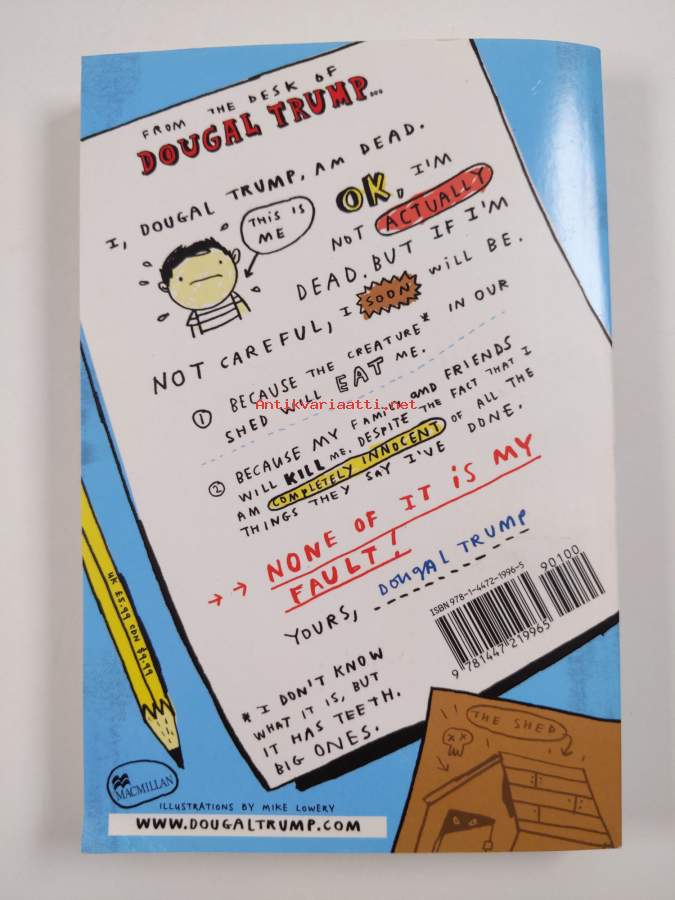 FROM THE DESK OF
DOUGAL TRUMP...
I, DOUGAL TRUMP, AM DEAD.
THIS IS
ME
OK, I'M
NOT ACTUALLY
DEAD. BUT IF I'M
NOT CAREFUL, I SOON WILL BE.
① BECAUSE THE CREATURE* IN OUR
SHED WILL EAT ME.
Antikvariaatti.net
② BECAUSE MY FAMILY AND FRIENDS
WILL KILL ME, DESPITE THE FACT THAT I
AM COMPLETELY INNOCENT OF ALL THE
THINGS THEY SAY I'VE DONE.
→→ NONE OF IT IS MY
FAULT!
YOURS, DOUGAL TRUMP
* I DON'T KNOW
WHAT IT IS, BUT
IT HAS TEETH.
BIG ONES.
UK £5.99 CDN $9.99
ISBN 978-1-4472-1996-5
90100
9 781447 219965
THE SHED
MACMILLAN
ILLUSTRATIONS BY MIKE LOWERY
WWW.DOUGALTRUMP.COM